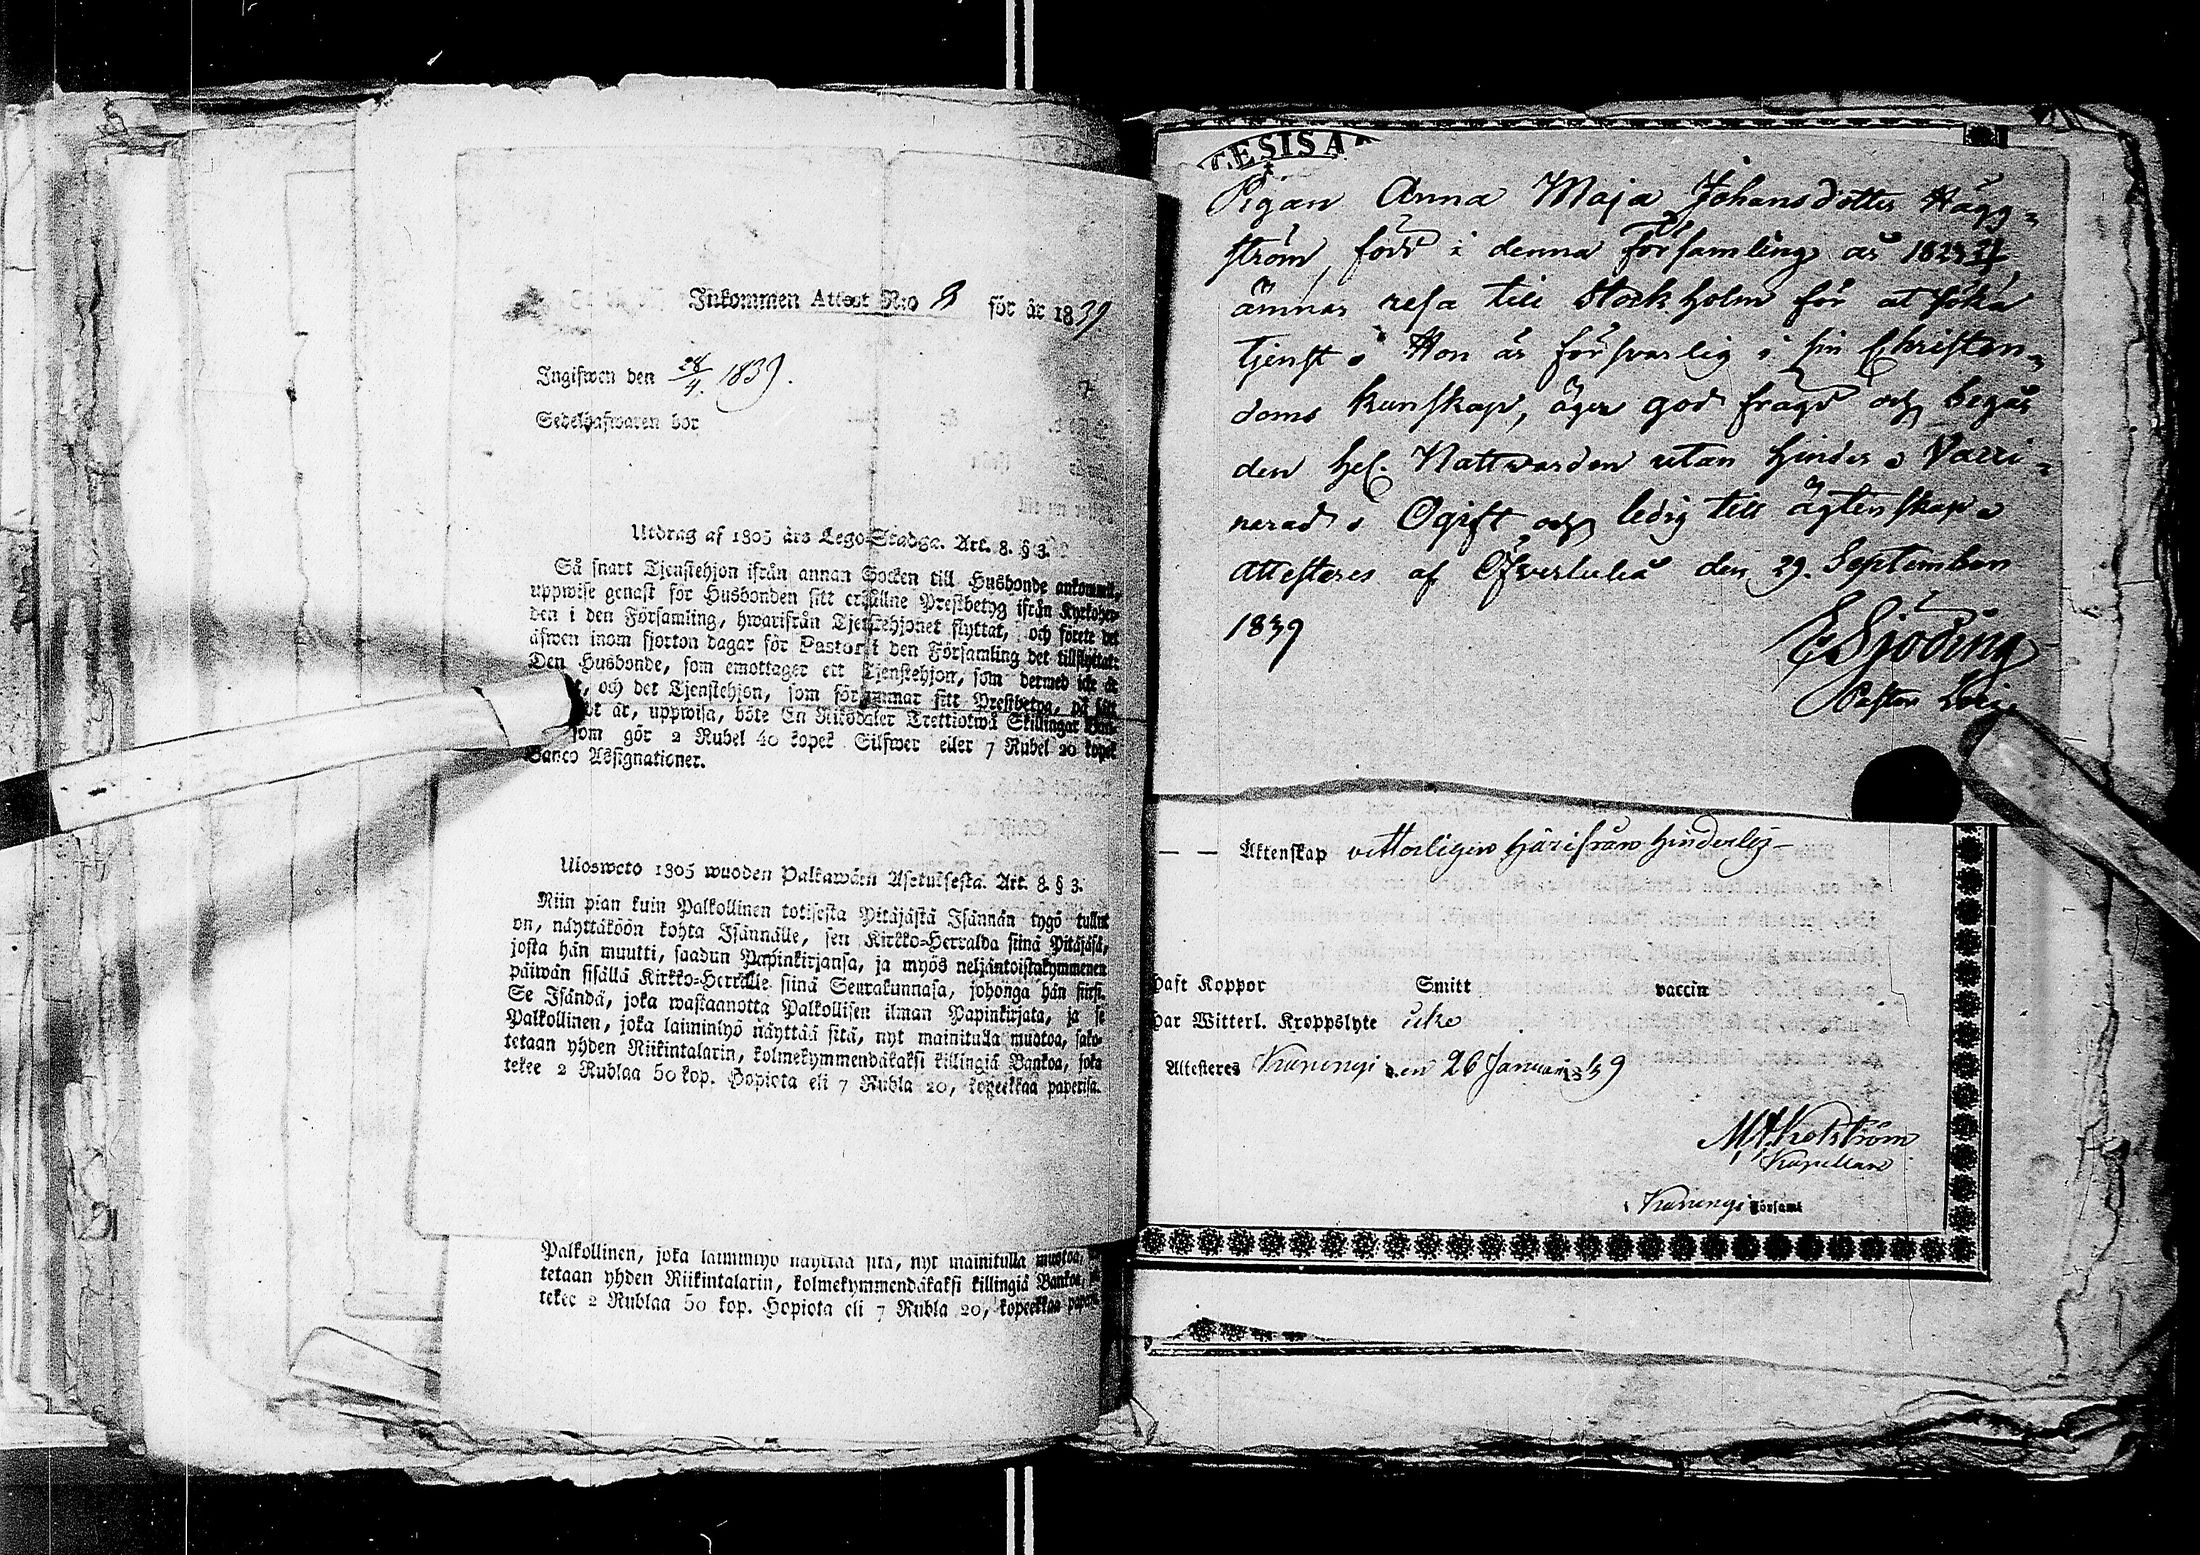 Inkommen Attest N:o 8 för år 1839
Ingifwen den 28/4. 1839.
Sedelhafwaren bor
Utdrag af 1805 års Lego-Stadga. Art. 8. § 3.
Så snart Tjenstehjon ifrån annan Socken till Husbonde ankommit,
uppwise genast för Husbonden sitt erhållne Prestbetyg ifrån Kyrkoher-
den i den Församling, hwarifrån Tjenstehjonet flyttat, och förete det
äfwen inom fjorton dagar för Pastor i den Församling det tillflyttat:
Den Husbonde, som emottager ett Tjenstehjon, som dermed icke är
och det Tjenstehjon, som försummar sitt Prestbetyg, på sätt
är, uppwisa, böte En Riksdaler Trettiotwå Skillingar Ban-
som gör 2 Rubel 40 kopek Silfwer eller 7 Rubel 20 kopek
Banco Assignationer.
Ulosweto 1805 wuoden Palkawäen Asetuksesta. Art. 8. § 3.
Niin pian kuin Palkollinen toisesta Pitäjästä Isännän tygö tullut
on, näyttäköön kohta Isännälle, sen Kirkko-Herralda siinä Pitäjäsä,
josta hän muutti, saadun Papinkirjansa, ja myös neljäntoistakymmenen
päiwän sisällä Kirkko-Herralle siinä Seurakunnasa, johonga hän siirsi.
Se Isändä, joka wastaanotta Palkollisen ilman Papinkirjata, ja se
Palkollinen, joka laiminlyö näyttää sitä, nyt mainitulla muotoa, sako-
tetaan yhden Riikintalarin, kolmekymmendäkaksi killingiä Bankoa, joka
tekee 2 Rublaa 50 kop. Hopiota eli 7 Rubla 20, kopeekkaa paperisa.
Palkollinen, joka laiminlyö näyttää sitä, nyt mainitulla muotoa,
tetaan yhden Riikintalarin, kolmekymmendäkaksi killingiä Bankoa,
tekee 2 Rublaa 50 kop. Hopiota eli 7 Rubla 20, kopeekkaa
Pigan Anna Maja Johansdotter Hägg=
ström, född i denna Församling år 1823
ämnar resa till Stockholm för at söka
tjenst. Hon är försvarlig i sin Christen=
doms kunskap, äger god frägd och begår
den hel. Nattvarden utan hinder. Vacci=
nerad. Ogift och ledig till ägtenskap.
Attesteres af Öfverluleå den 29. September
1839
E Sjöding
Pastor
Äktenskap vitterligen härifrån hinderlös
Haft Koppor Smitt vaccin
Har Witterl. Kroppslyte icke
Attesteres Karungi den 26 Januari 1839
Kapellan
i Karungi Församl